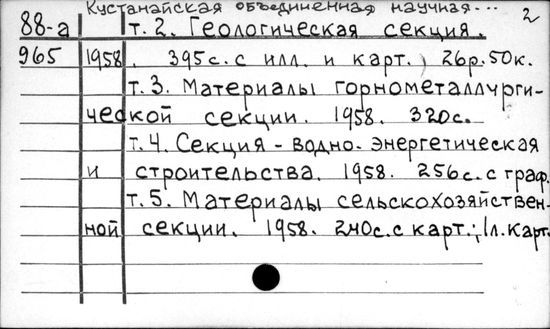 Кустанайская объединенная научная... 2
88-а т. 2. Геологическая секция.
965 1958. 395с. с илл. и карт.) 26р.50к.
т. 3. Материалы горнометаллурги-
ческой секции. 1958. 320с.
т. 4. Секция - водно-энергетическая
и строительства. 1958. 256с. с граф.
т. 5. Материалы сельскохозяйствен-
ной секции. 1958. 240с. с карт.; 1л. карт.